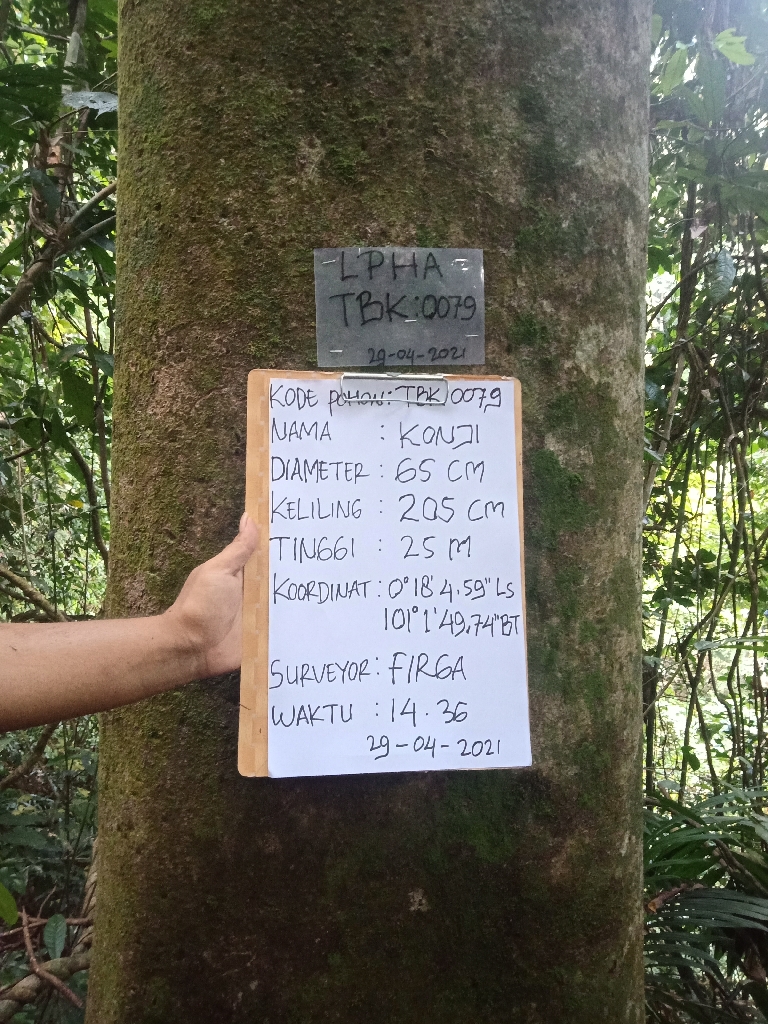 LPHA
TBK:0079
29-04-2021
KODE POHON: TBK 0079
NAMA : KONJI
DIAMETER : 65 CM
KELILING : 205 CM
TINGGI : 25 M
KOORDINAT : 0°18'4.59" LS
101°1'49.74" BT
SURVEYOR : FIRGA
WAKTU : 14.36
29-04-2021